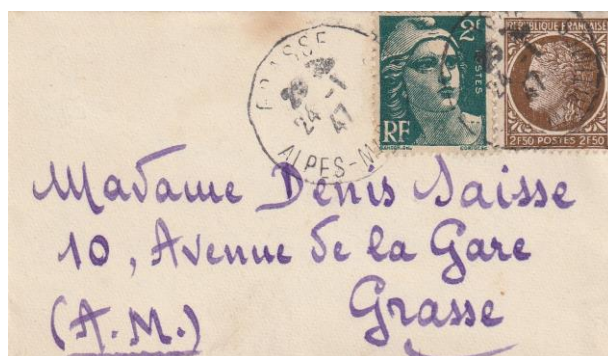 GRASSE
24 -1
47
ALPES-M
2F
POSTES
RF
GANDON
RÉPUBLIQUE FRANÇAISE
24 -1
47
2F50 POSTES 2F50
Madame Denis Saisse
10, Avenue de la Gare
(A.M.) Grasse